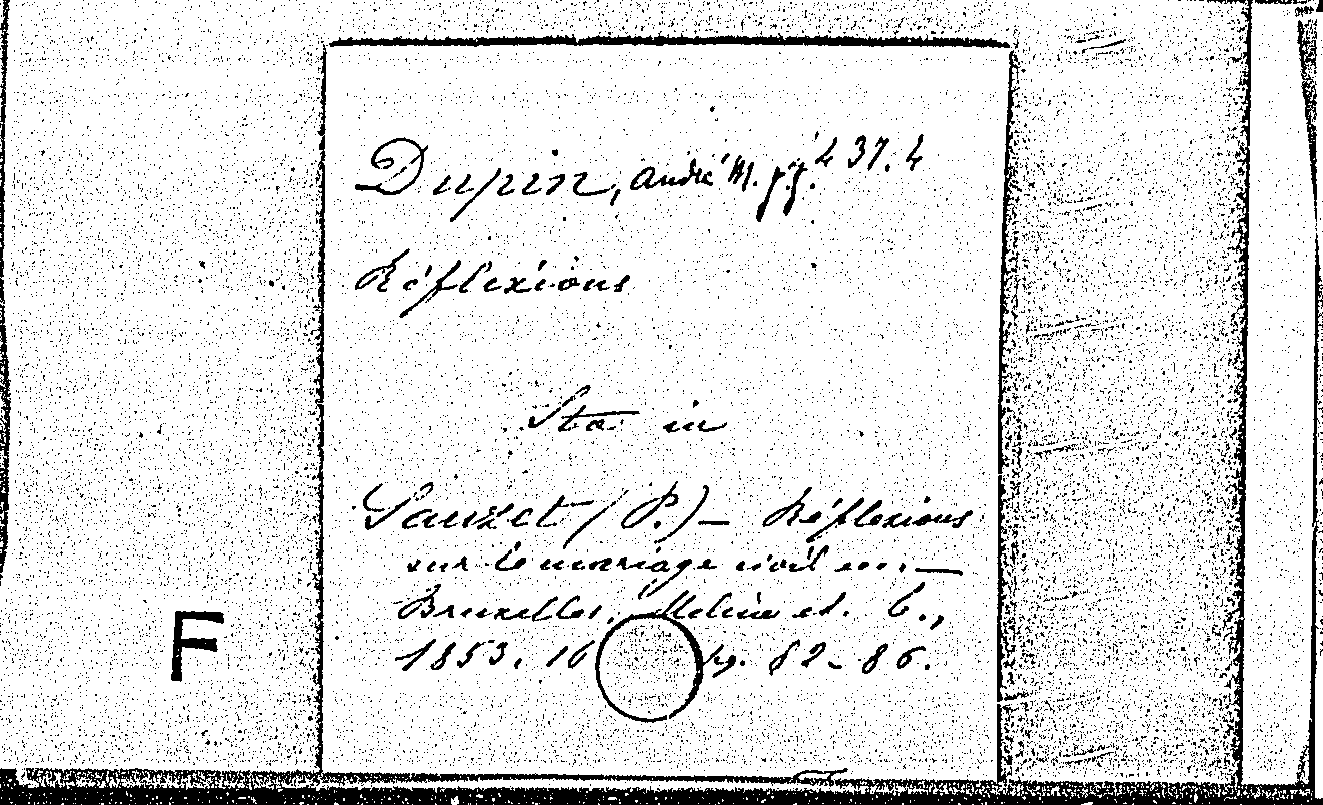 Dupin, André M. j.j. 437.4
Réflexions
Sta in
Sauzet (P.) – Réflexions
sur le mariage civil ... –
Bruxelles, Meline et. C.,
1853. 16 pg. 82-86.
F